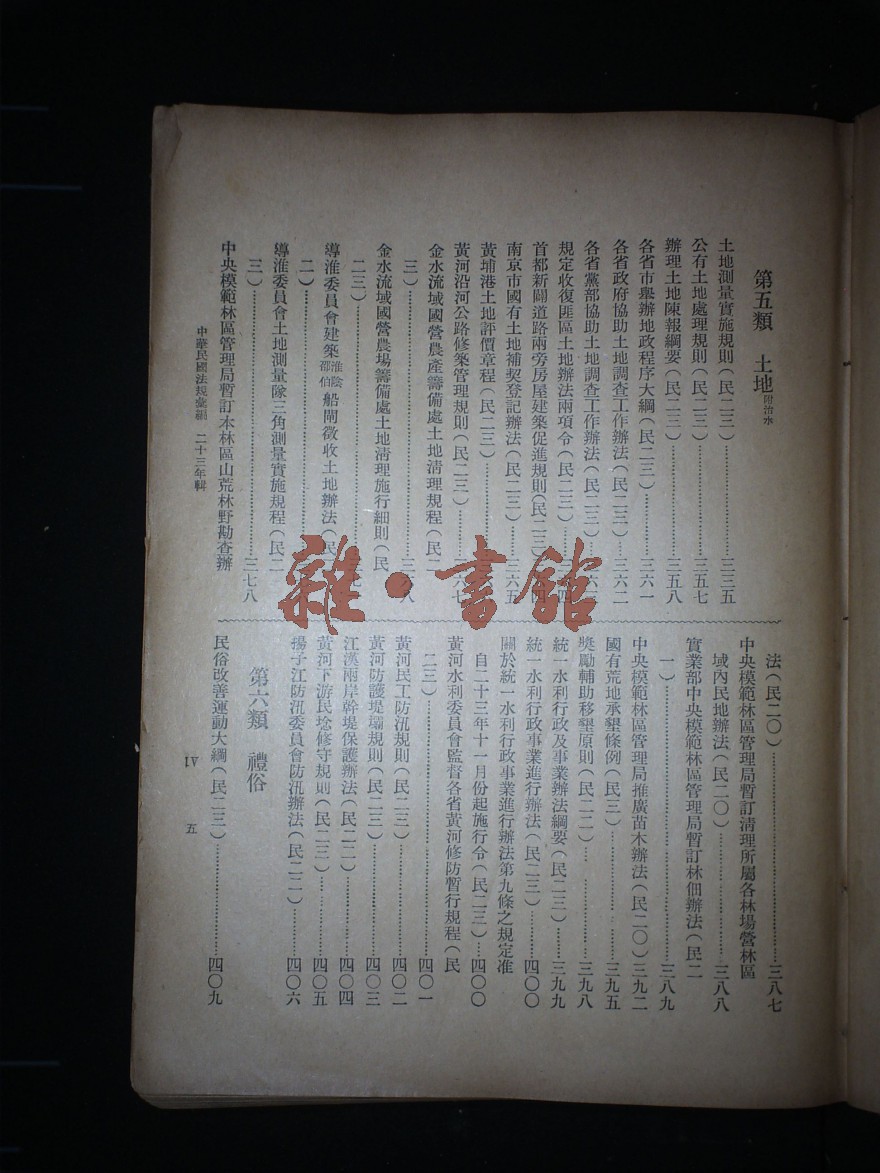 第五類　土地附治水
土地測量實施規則(民二三)…………三三五
公有土地處理規則(民二三)…………三五七
辦理土地陳報綱要(民二三)…………三五八
各省市舉辦地政程序大綱(民二三)…………三六一
各省政府協助土地調查工作辦法(民二三)…三六二
各省黨部協助土地調查工作辦法(民二三)
規定收復匪區土地辦法兩項令(民二三)
首都新闢道路兩旁房屋建築促進規則(民二三)
南京市國有土地補契登記辦法(民二三)…三六五
黃埔港土地評價章程(民二三)
黃河沿河公路修築管理規則(民二三)…六七
金水流域國營農產籌備處土地清理規程(民二
三)
金水流域國營農場籌備處土地清理施行細則(民
二三)
導淮委員會建築淮陰邵伯船閘徵收土地辦法(民
二)
導淮委員會土地測量隊三角測量實施規程(民二
三)…………三七八
中央模範林區管理局暫訂本林區山荒林野勘查辦
法(民二〇)…………三八七
中央模範林區管理局暫訂清理所屬各林場營林區
域內民地辦法(民二〇)…………三八八
實業部中央模範林區管理局暫訂林佃辦法(民二
一)…………三八九
中央模範林區管理局推廣苗木辦法(民二〇)三九二
國有荒地承墾條例(民三)…………三九五
獎勵輔助移墾原則(民二二)…………三九八
統一水利行政及事業辦法綱要(民二三)…三九九
統一水利行政事業進行辦法(民二三)……四〇〇
關於統一水利行政事業進行辦法第九條之規定准
自二十三年十一月份起施行令(民二三)…四〇〇
黃河水利委員會監督各省黃河修防暫行規程(民
二三)…………四〇一
黃河民工防汛規則(民二三)…………四〇二
黃河防護堤壩規則(民二三)…………四〇三
江漢兩岸幹堤保護辦法(民二二)…………四〇四
黃河下游民埝修守規則(民二三)…………四〇五
揚子江防汛委員會防汛辦法(民二二)……四〇六
第六類　禮俗
民俗改善運動大綱(民二三)…………四〇九
中華民國法規彙編　二十三年輯
IV
五
雜·書館